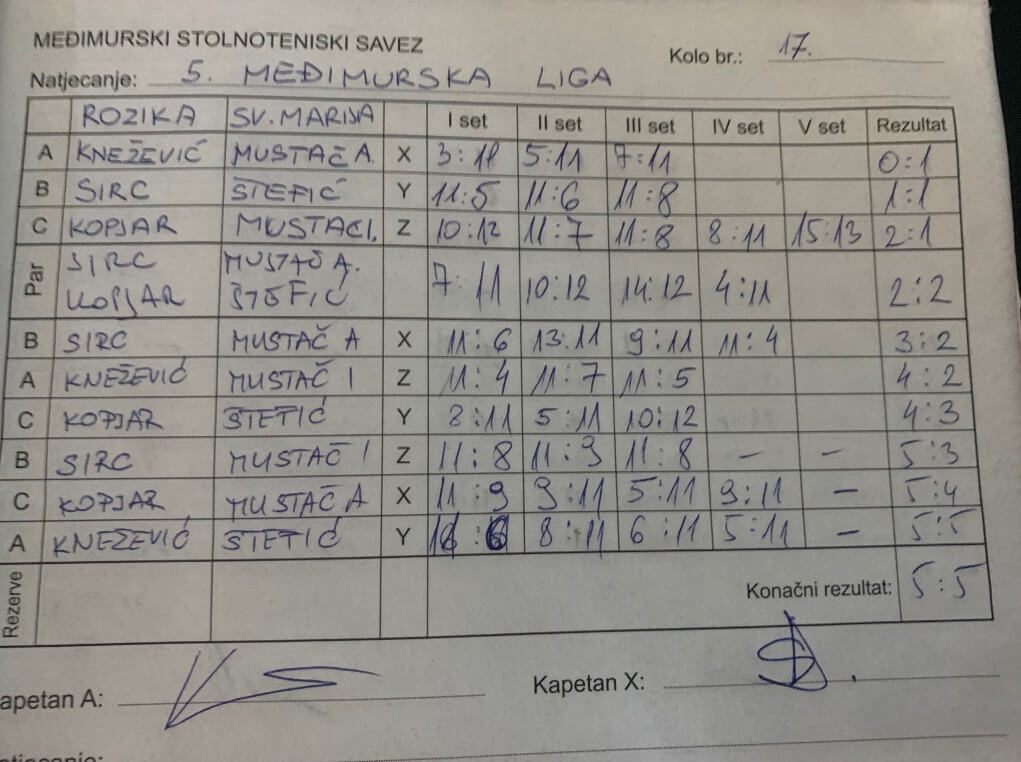 MEĐIMURSKI STOLNOTENISKI SAVEZ
Kolo br.: 17.
Natjecanje: 5. MEĐIMURSKA LIGA
ROZIKA SV. MARIJA I set II set III set IV set V set Rezultat
A KNEŽEVIĆ MUSTAČ A. X 3:11 5:11 7:11 0:1
B SIRC ŠTEFIĆ Y 11:5 11:6 11:8 1:1
C KOPJAR MUSTAČ I. Z 10:12 11:7 11:8 8:11 15:13 2:1
Par SIRC KOPJAR MUSTAČ A. ŠTEFIĆ 7:11 10:12 14:12 4:11 2:2
B SIRC MUSTAČ A X 11:6 13:11 9:11 11:4 3:2
A KNEŽEVIĆ MUSTAČ I Z 11:4 11:7 11:5 4:2
C KOPJAR ŠTEFIĆ Y 8:11 5:11 10:12 4:3
B SIRC MUSTAČ I Z 11:8 11:9 11:8 – – 5:3
C KOPJAR MUSTAČ A X 11:9 9:11 5:11 9:11 – 5:4
A KNEŽEVIĆ ŠTEFIĆ Y 8:11 6:11 5:11 – 5:5
Rezerve Konačni rezultat: 5:5
apetan A: Kapetan X: